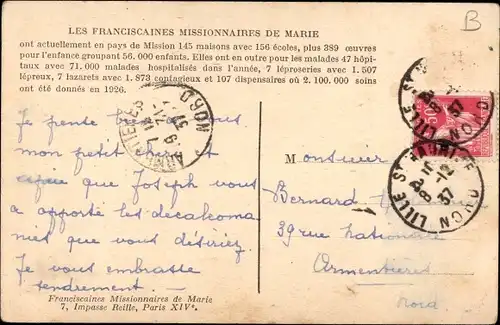 B
LES FRANCISCAINES MISSIONNAIRES DE MARIE
ont actuellement en pays de Mission 145 maisons avec 156 écoles, plus 389 œuvres
pour l'enfance groupant 56.000 enfants. Elles ont en outre pour les malades 47 hôpi-
taux avec 71.000 malades hospitalisés dans l'année, 7 léproseries avec 1.507
lépreux, 7 lazarets avec 1.873 contagieux et 107 dispensaires où 2.100.000 soins
ont été donnés en 1926.
Je pense bien
mon petit et
que Joseph vous
a apporté les decalcoma
nies que vous désiriez.
Je vous embrasse
tendrement.
Franciscaines Missionnaires de Marie
7, Impasse Reille, Paris XIVe.
ARMENTIERES
NORD
LILLE
NORD
LILLE
8-12
37
NORD
Monsieur
Bernard
39 rue Nationale
Armentières
Nord